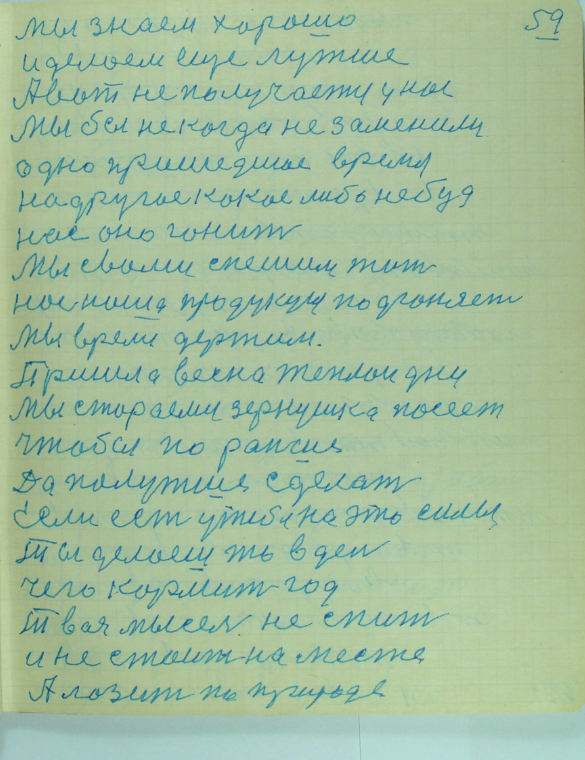 59
мы знаем хорошо
и делоем еще лутше
А вот не получаетци у нас
мы бы некогда не заменили
одно пришедшое время
на другое кокое либо небуд
нас оно гонит
мы с вами спешим тот
нас наша продукцця подгоняет
мы времи держим.
Пришла весна теплои дни
мы стораеми зернушка посеет
чтобы по раньше
Да полутше сделат
Если ест у тебя на это силы
Ты делоеш то в ден
чего кормит год
Твоя мысел не спит
и не стоит на месте
А лозит по природе